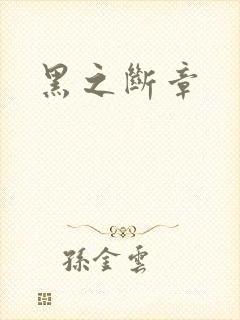 黑之斷章
孫金雲